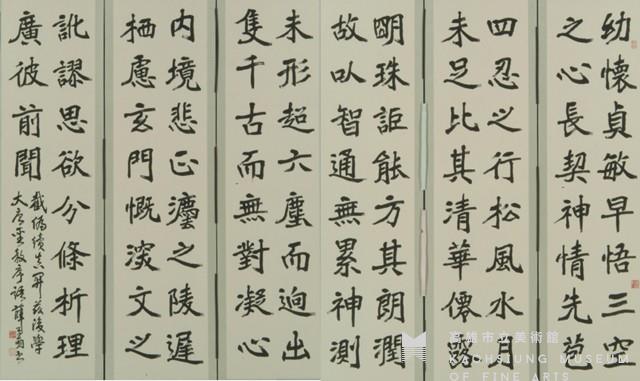 幼懷貞敏早悟三空
之心長契神情先苞
四忍之行松風水月
未足比其清華僊露
明珠詎能方其朗潤
故以智通無累神測
未形超六塵而迥出
隻千古而無對凝心
內境悲正灋之陵遲
栖慮玄門慨深文之
訛謬思欲分條析理
廣彼前聞
截偽續真開茲後學
大唐聖教序語薛
高雄市立美術館
KAOHSIUNG MUSEUM
OF FINE ARTS